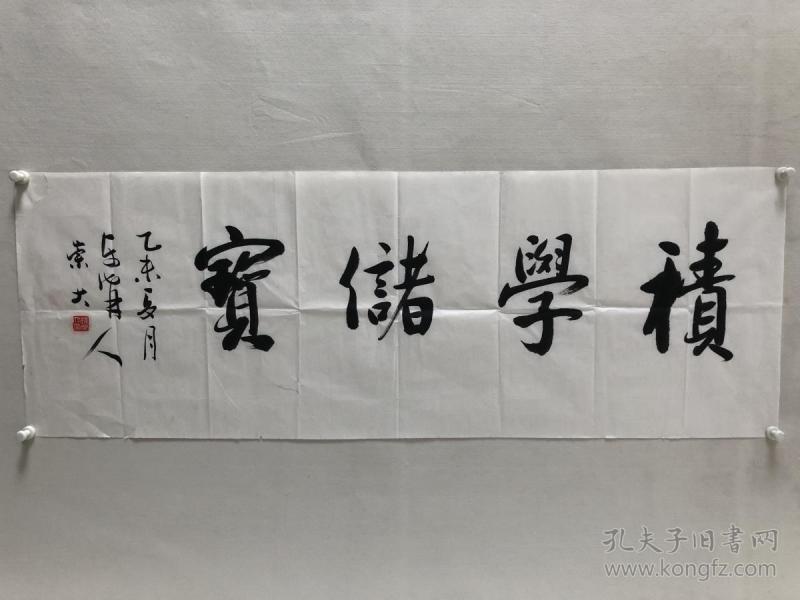 積學儲寶
乙未夏月
人
崇大
孔夫子旧書网
www.kongfz.com